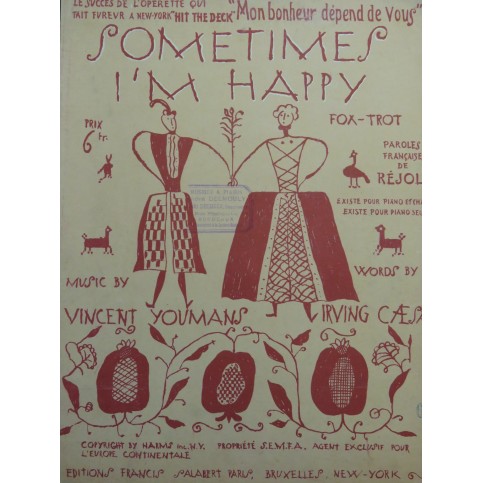 LE SUCCÈS DE L'OPÉRETTE QUI
FAIT FUREUR A NEW-YORK "HIT THE DECK" "Mon bonheur dépend de Vous"
SOMETIMES
I'M HAPPY
PRIX
6 Fr.
FOX-TROT
PAROLES
FRANÇAISE
DE
RÉJOL
EXISTE POUR PIANO ET CHA
EXISTE POUR PIANO SEU
MUSIC BY
VINCENT YOUMANS
WORDS BY
IRVING CÆSA
COPYRIGHT BY HARMS INC. N.Y. PROPRIÉTÉ S.E.M.F.A. AGENT EXCLUSIF POUR
L'EUROPE CONTINENTALE
EDITIONS FRANCIS SALABERT PARIS, BRUXELLES, NEW-YORK